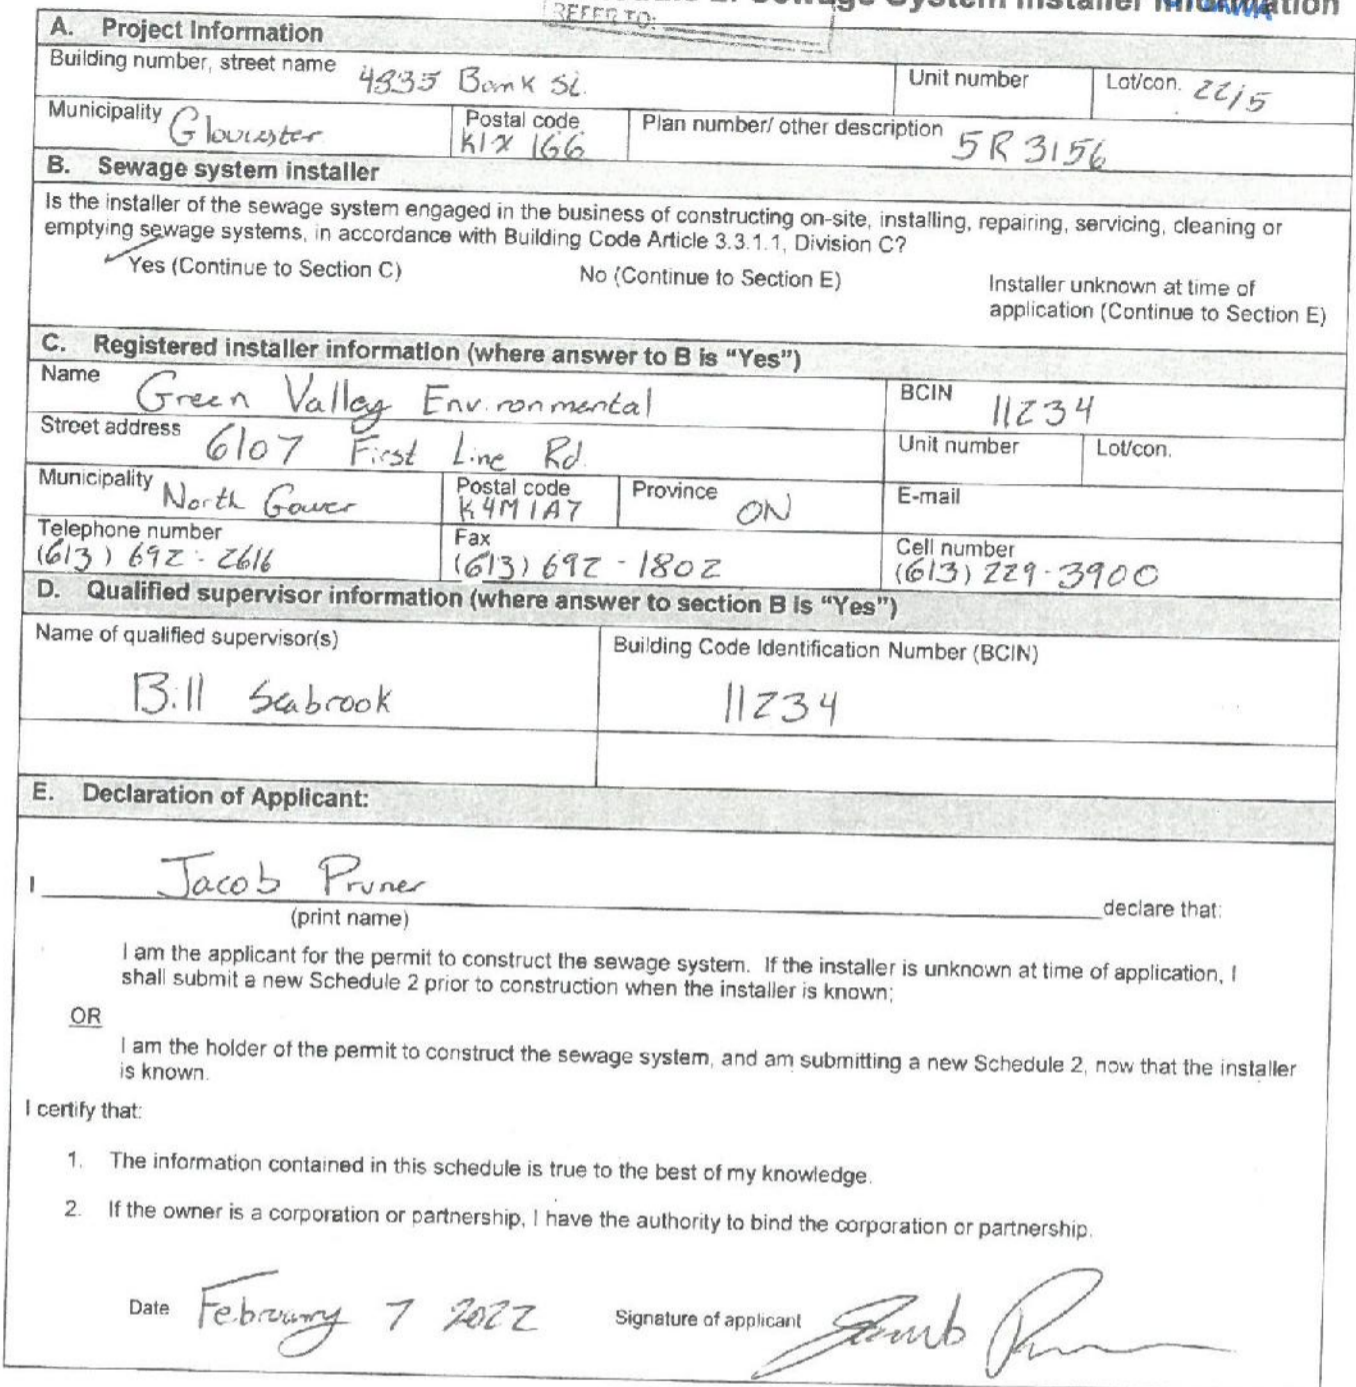 Sewage System Installer Information
REFER TO:
A. Project Information
Building number, street name 4835 Bank St.
Unit number
Lot/con. 22/5
Municipality Gloucester
Postal code K1X 1G6
Plan number/ other description 5R 3156
B. Sewage system installer
Is the installer of the sewage system engaged in the business of constructing on-site, installing, repairing, servicing, cleaning or
emptying sewage systems, in accordance with Building Code Article 3.3.1.1, Division C?
Yes (Continue to Section C) No (Continue to Section E) Installer unknown at time of
application (Continue to Section E)
C. Registered installer information (where answer to B is "Yes")
Name Green Valley Environmental
BCIN 11234
Street address 6107 First Line Rd.
Unit number
Lot/con.
Municipality North Gower
Postal code K4M 1A7
Province ON
E-mail
Telephone number
(613) 692-2616
Fax
(613) 692-1802
Cell number
(613) 229-3900
D. Qualified supervisor information (where answer to section B is "Yes")
Name of qualified supervisor(s)
Building Code Identification Number (BCIN)
Bill Seabrook
11234
E. Declaration of Applicant:
I Jacob Pruner declare that:
(print name)
I am the applicant for the permit to construct the sewage system. If the installer is unknown at time of application, I
shall submit a new Schedule 2 prior to construction when the installer is known;
OR
I am the holder of the permit to construct the sewage system, and am submitting a new Schedule 2, now that the installer
is known.
I certify that:
1. The information contained in this schedule is true to the best of my knowledge.
2. If the owner is a corporation or partnership, I have the authority to bind the corporation or partnership.
Date February 7 2022 Signature of applicant